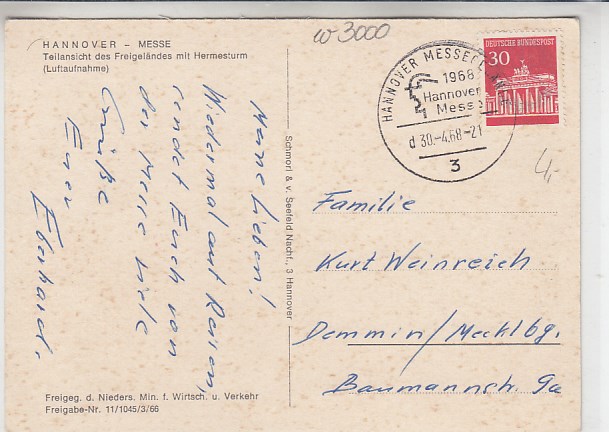 HANNOVER – MESSE
Teilansicht des Freigeländes mit Hermesturm
(Luftaufnahme)
w 3000
HANNOVER MESSEGELÄNDE
1968
Hannover
Messe
d 30.-4.68-21
3
DEUTSCHE BUNDESPOST
30
4,-
Meine Lieben!
Wiedermal auf Reisen,
sendet Euch von
der Messe viele
Grüße
Euer
Eberhard.
Schmorl & v. Seefeld Nachf., 3 Hannover
Familie
Kurt Weinreich
Demmin/Mecklbg.
Baumannstr. 9a
Freigeg. d. Nieders. Min. f. Wirtsch. u. Verkehr
Freigabe-Nr. 11/1045/3/66